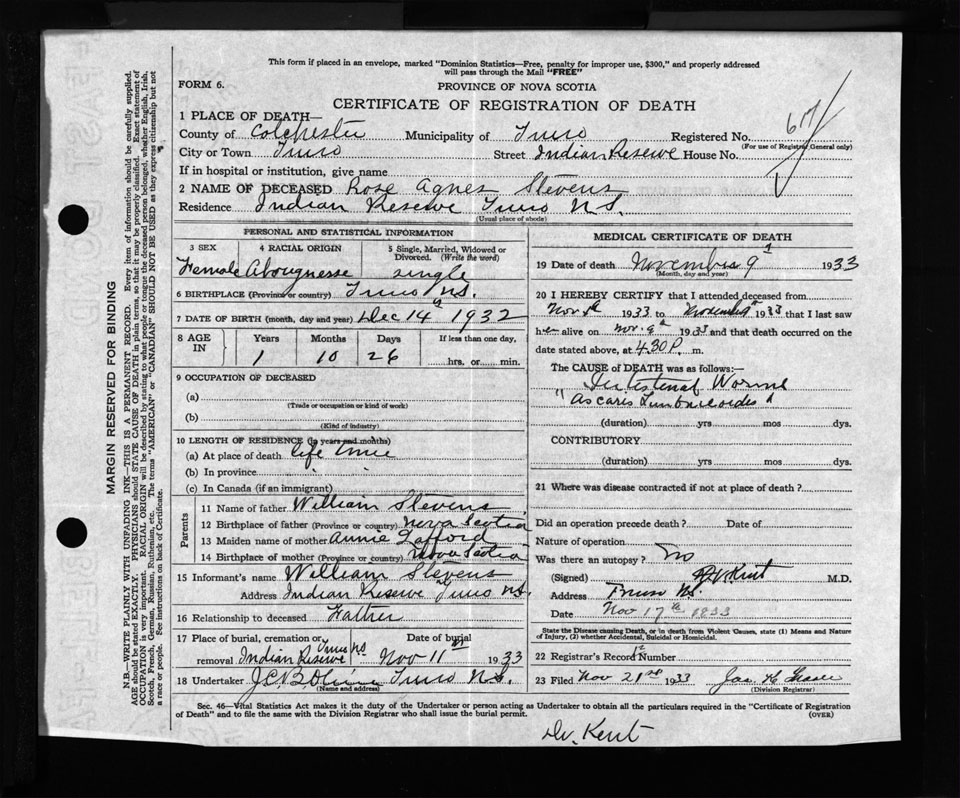 This form if placed in an envelope, marked "Dominion Statistics—Free, penalty for improper use, $300," and properly addressed
will pass through the Mail "FREE"
FORM 6.
PROVINCE OF NOVA SCOTIA
CERTIFICATE OF REGISTRATION OF DEATH
1 PLACE OF DEATH—
County of Colchester Municipality of Truro Registered No. 617
(For use of Registrar General only)
City or Town Truro Street Indian Reserve House No.
If in hospital or institution, give name
2 NAME OF DECEASED Rose Agnes Stevens
Residence Indian Reserve Truro N.S.
(Usual place of abode)
PERSONAL AND STATISTICAL INFORMATION
3 SEX 4 RACIAL ORIGIN 5 Single, Married, Widowed or Divorced. (Write the word)
Female single
6 BIRTHPLACE (Province or country) Truro N.S.
7 DATE OF BIRTH (month, day and year) Dec 14th 1932
8 AGE IN Years Months Days If less than one day,
1 10 26 hrs. or min.
9 OCCUPATION OF DECEASED
(a)
(Trade or occupation or kind of work)
(b)
(Kind of industry)
10 LENGTH OF RESIDENCE (In years and months)
(a) At place of death life time
(b) In province
(c) In Canada (if an immigrant)
Parents
11 Name of father William Stevens
12 Birthplace of father (Province or country) Nova Scotia
13 Maiden name of mother Annie
14 Birthplace of mother (Province or country) Nova Scotia
15 Informant's name William Stevens
Address Indian Reserve Truro N.S.
16 Relationship to deceased Father
17 Place of burial, cremation or removal Indian Reserve Truro NS Date of burial Nov 11th 1933
18 Undertaker Truro N.S.
(Name and address)
MEDICAL CERTIFICATE OF DEATH
19 Date of death November 9 1933
(Month, day and year)
20 I HEREBY CERTIFY that I attended deceased from
Nov 1933 to November 1933 that I last saw
her alive on Nov. 9th 1933 and that death occurred on
date stated above, at 4.30 P. m.
The CAUSE of DEATH was as follows:—
Intestinal Worms
"Ascaris Lumbricoides"
(duration) yrs mos dys.
CONTRIBUTORY
(duration) yrs mos dys.
21 Where was disease contracted if not at place of death?
Did an operation precede death? Date of
Nature of operation
Was there an autopsy? No
(Signed) Kent M.D.
Address Truro N.S.
Date Nov 17th 1933
State the Disease causing Death, or in death from Violent Causes, state (1) Means and Nature
of Injury, (2) whether Accidental, Suicidal or Homicidal.
22 Registrar's Record Number
23 Filed Nov 21st 1933
(Division Registrar)
Sec. 46—Vital Statistics Act makes it the duty of the Undertaker or person acting as Undertaker to obtain all the particulars required in the "Certificate of Registration
of Death" and to file the same with the Division Registrar who shall issue the burial permit.
(OVER)
Dr. Kent
MARGIN RESERVED FOR BINDING
N.B.—WRITE PLAINLY WITH UNFADING INK—THIS IS A PERMANENT RECORD. Every item of information should be carefully supplied.
AGE should be stated EXACTLY. PHYSICIANS should STATE CAUSE OF DEATH in plain terms, so that it may be properly classified. Exact statement of
OCCUPATION is very important. RACIAL ORIGIN will be described by stating to what people or tongue the deceased person belonged, whether English, Irish,
Scotch, French, German, Russian, Ruthenian, etc. The terms "AMERICAN" or "CANADIAN" SHOULD NOT BE USED as they express citizenship but not
a race or people. See instructions on back of Certificate.